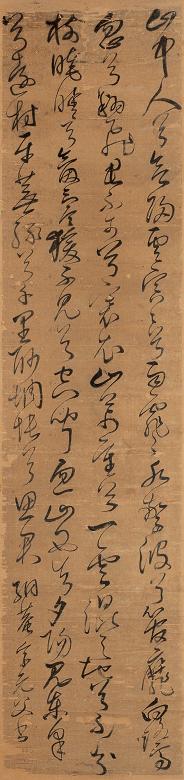 山中人兮欲歸雲冥冥兮雨霏霏水驚波兮翠菅靡白鷺
忽兮翻飛君不可兮褰衣山萬重兮一雲混天地兮不分
樹晻曖兮氛氳猿不見兮空聞忽山西兮夕陽見東皋
兮遠村平蕪綠兮千里眇惆悵兮思君